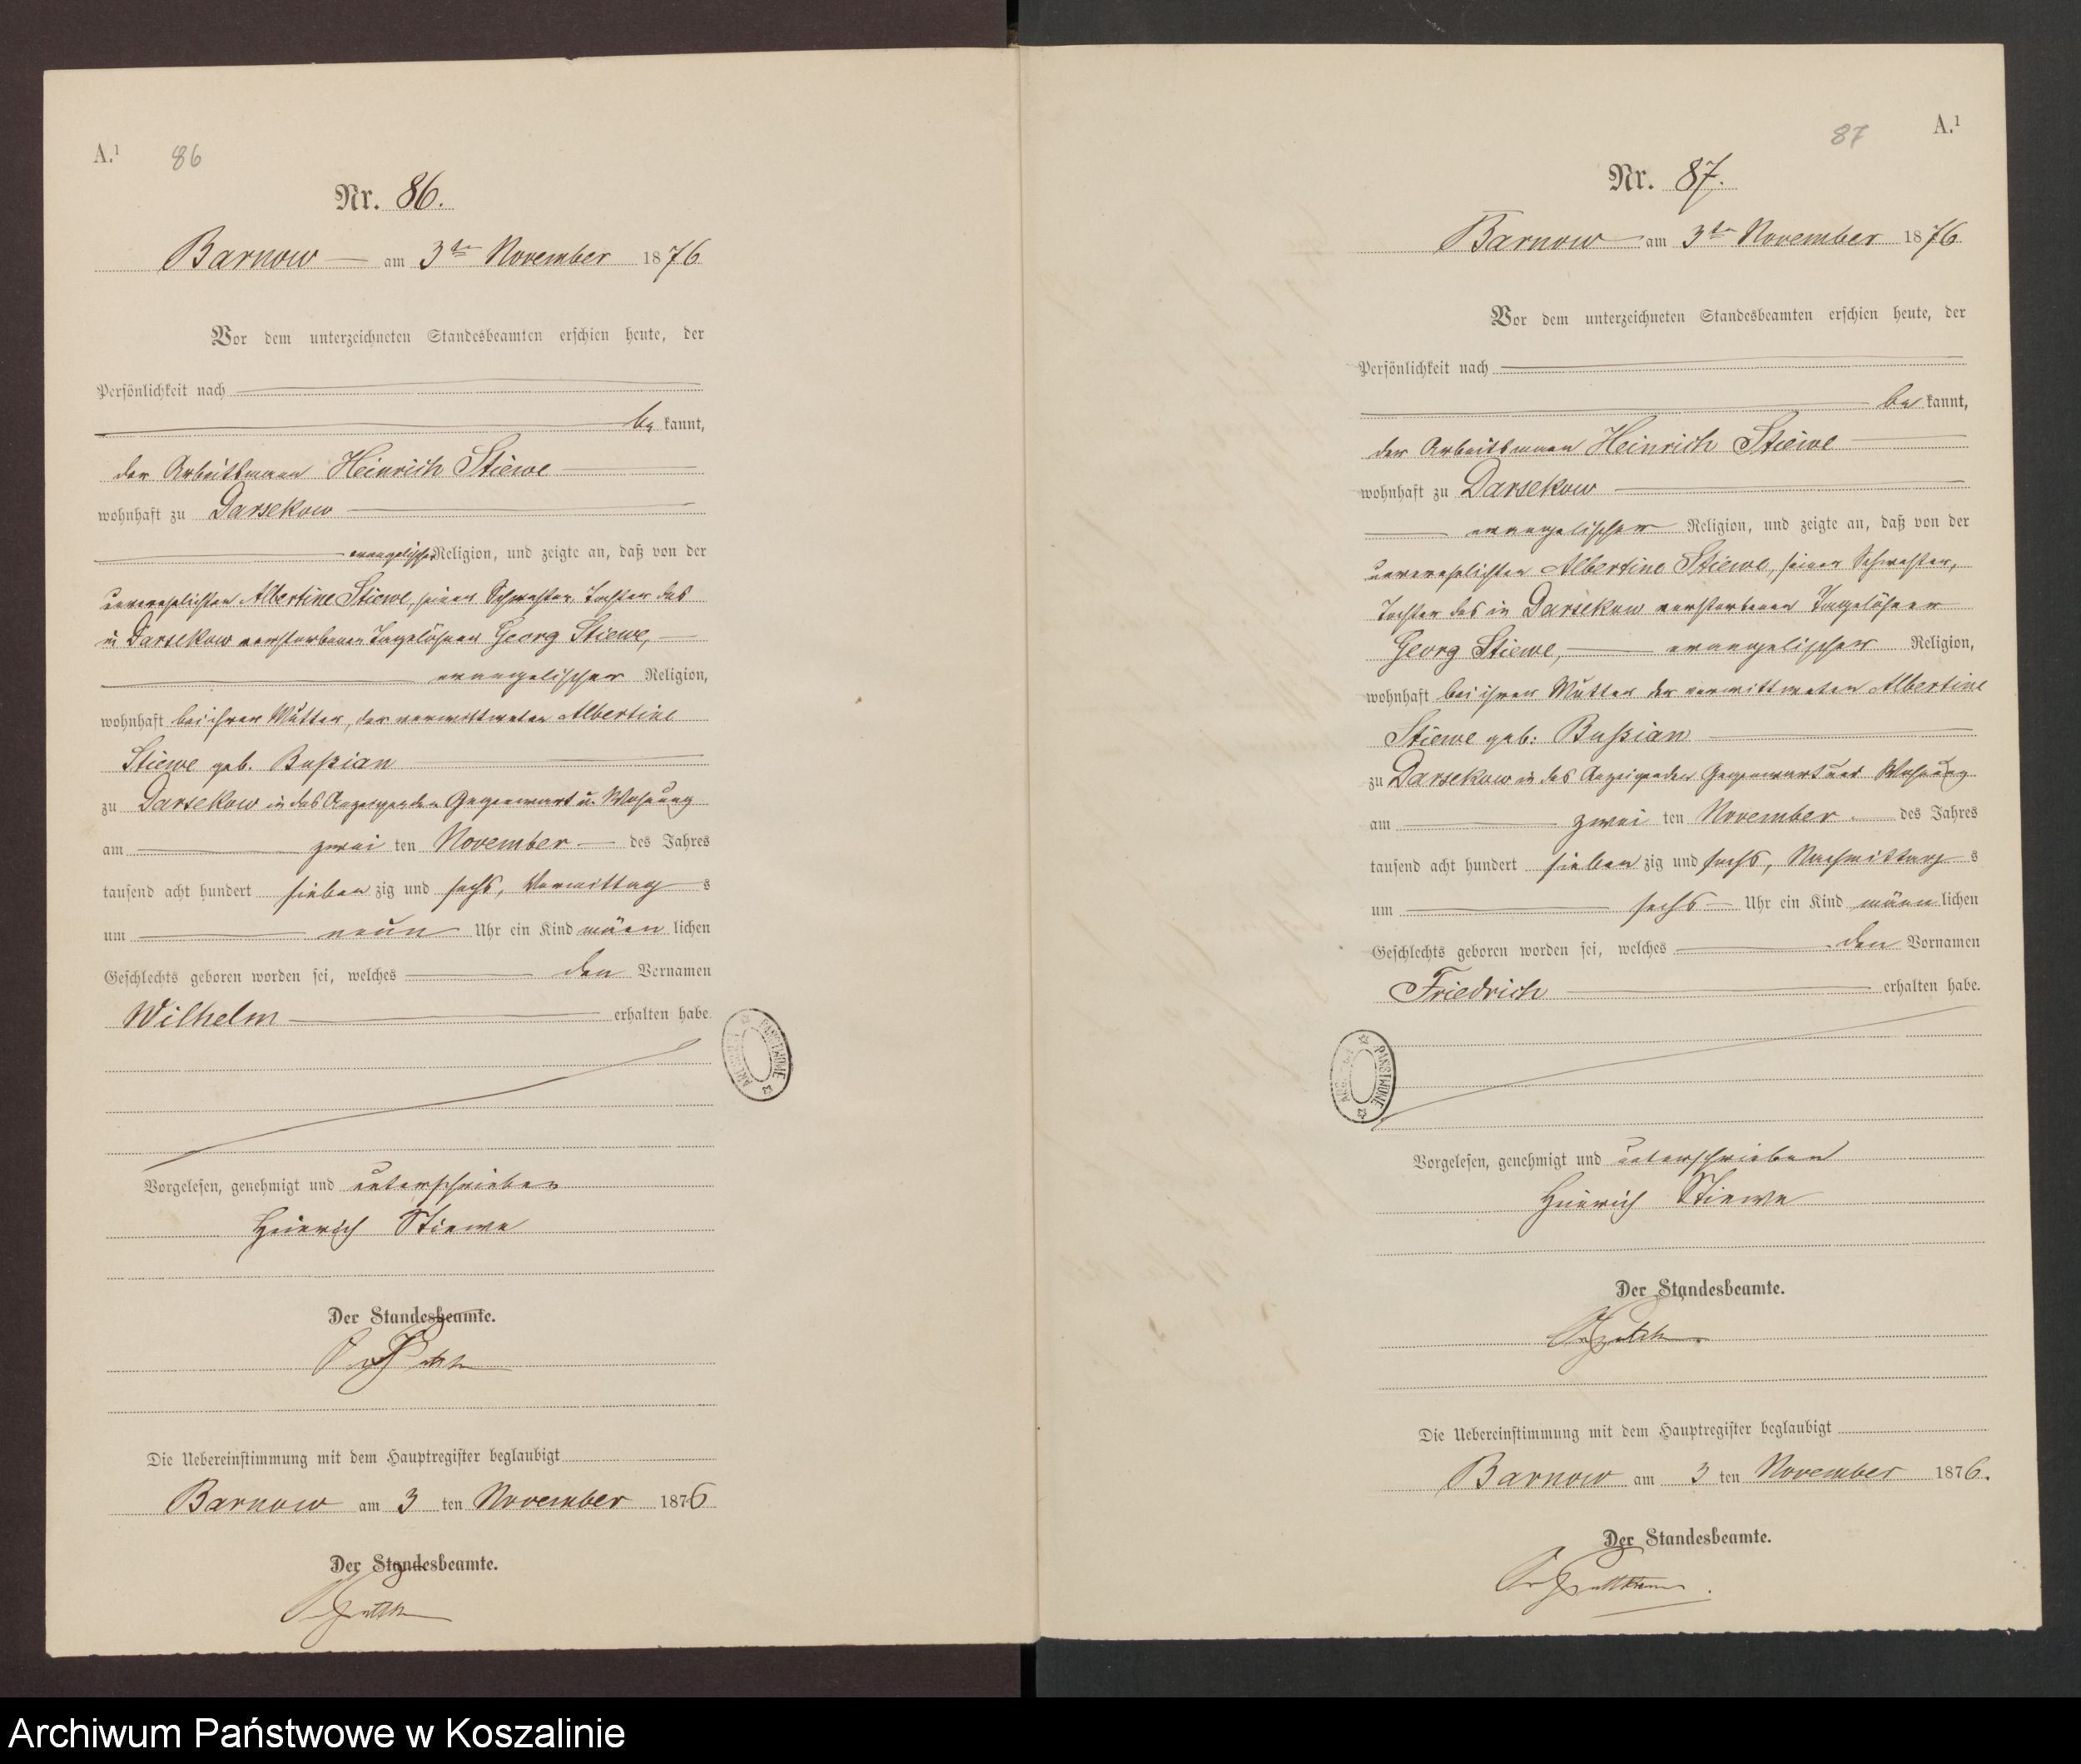 A.¹ 86
Nr. 86.
Barnow am 3ten November 1876
Vor dem unterzeichneten Standesbeamten erschien heute, der
Persönlichkeit nach
be kannt,
der Arbeitsmann Heinrich Stiewe
wohnhaft zu Darsekow
evangelischer Religion, und zeigte an, daß von der
unverehelichten Albertine Stiewe, seiner Schwester, Tochter des
in Darsekow verstorbenen Tagelöhner Georg Stiewe,
evangelischer Religion,
wohnhaft bei ihrer Mutter, der verwittweten Albertine
Stiewe geb. Bußian
zu Darsekow in des Anzeigenden Gegenwart u. Wohnung
am zwei ten November des Jahres
tausend acht hundert sieben zig und sechs, Vormittag s
um neun Uhr ein Kind männ lichen
Geschlechts geboren worden sei, welches den Vornamen
Wilhelm erhalten habe.
ARCHIWUM PAŃSTWOWE
Vorgelesen, genehmigt und unterschrieben
Heinrich Stiewe
Der Standesbeamte.
Die Uebereinstimmung mit dem Hauptregister beglaubigt
Barnow am 3 ten November 1876
Der Standesbeamte.
87 A.¹
Nr. 87.
Barnow am 3ten November 1876
Vor dem unterzeichneten Standesbeamten erschien heute, der
Persönlichkeit nach
be kannt,
der Arbeitsmann Heinrich Stiewe
wohnhaft zu Darsekow
evangelischer Religion, und zeigte an, daß von der
unverehelichten Albertine Stiewe, seiner Schwester,
Tochter des in Darsekow verstorbenen Tagelöhner
Georg Stiewe, evangelischer Religion,
wohnhaft bei ihrer Mutter der verwittweten Albertine
Stiewe geb: Bußian
zu Darsekow in des Anzeigenden Gegenwart und Wohnung
am zwei ten November des Jahres
tausend acht hundert sieben zig und sechs, Nachmittag s
um sechs Uhr ein Kind männ lichen
Geschlechts geboren worden sei, welches den Vornamen
Friedrich erhalten habe.
PAŃSTWOWE
Vorgelesen, genehmigt und unterschrieben
Heinrich Stiewe
Der Standesbeamte.
Die Uebereinstimmung mit dem Hauptregister beglaubigt
Barnow am 3 ten November 1876.
Der Standesbeamte.
Archiwum Państwowe w Koszalinie